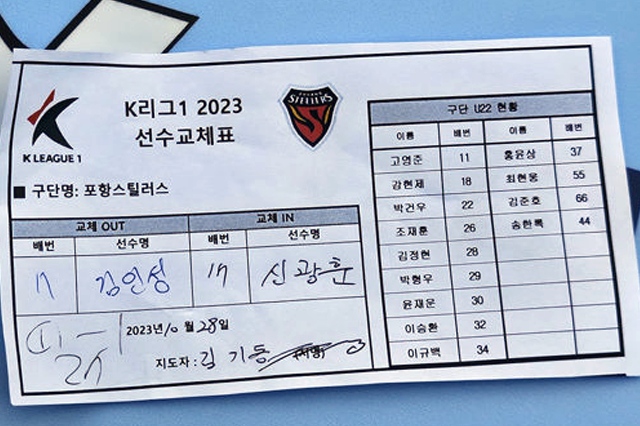 K리그1 2023
선수교체표
K LEAGUE 1
STEELERS
■ 구단명: 포항스틸러스
교체 OUT 교체 IN
배번 선수명 배번 선수명
17 김인성 17 신광훈
2023년 10월 28일
지도자: 김기동 (서명)
구단 U22 현황
이름 배번 이름 배번
고영준 11 홍윤상 37
강현제 18 최현웅 55
박건우 22 김준호 66
조재훈 26 송한록 44
김정현 28
박형우 29
윤재운 30
이승환 32
이규백 34